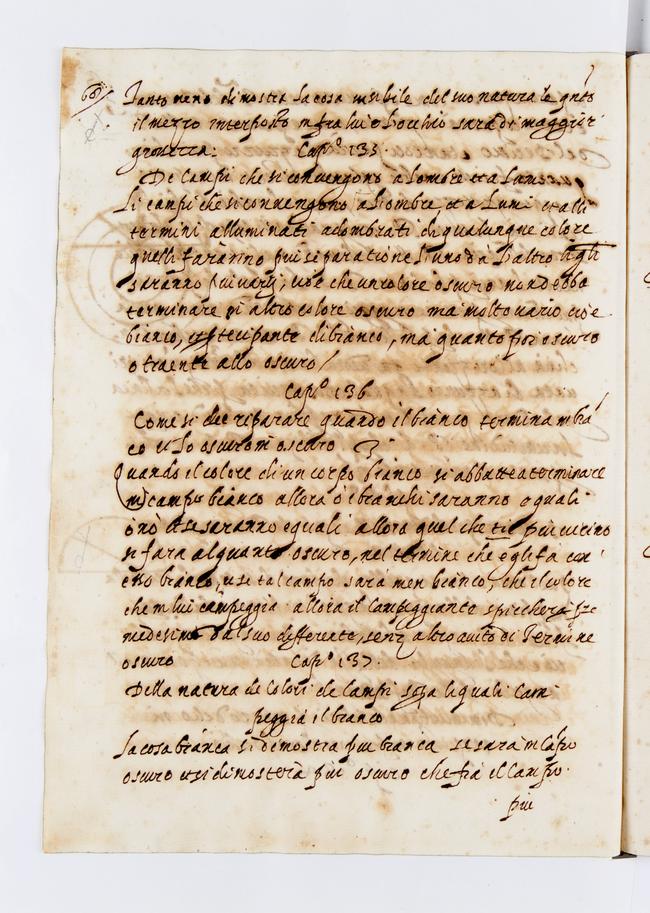 60
Tanto meno dimostra la cosa visibile del suo naturale q.nto
il mezzo interposto infra lui e l'occhio sarà di maggior
grossezza: Cap.º 135.
De Campi che si convengono a l'ombre et a lumi
Li campi che si convengono a l'ombre, et a Lumi et alli
termini alluminati adombrati di qualunque colore
quelli faranno piu separatione l'uno da l'altro se gli
saranno piu varij, cioè che un colore oscuro non debba
terminare in altro colore oscuro ma molto vario cioè
bianco, participante di bianco, ma quanto poi oscuro
o traente allo oscuro
Cap.º 136
Come si dee riparare quando il bianco termina in bia
co u lo oscuro in oscuro
Quando il colore di un corpo bianco si abbatte a terminare
in campo bianco allora o i bianchi saranno equali
o no et se saranno equali allora quel che ti è piu vicino
si fara alquanto oscuro, nel termine che egli fa con
esso bianco, e se tal campo sarà men bianco, che il colore
che in lui campeggia allora il Campeggiante spicchera per
medesimo dal suo differente, senz altro aiuto di Termine
oscuro Cap.º 137.
Della natura de Colori de Campi sopra le quali Cam
peggia il bianco
La cosa bianca si dimostra piu bianca se sarà in Capo
oscuro et si dimosterà piu oscuro che fia il Campo.
piu